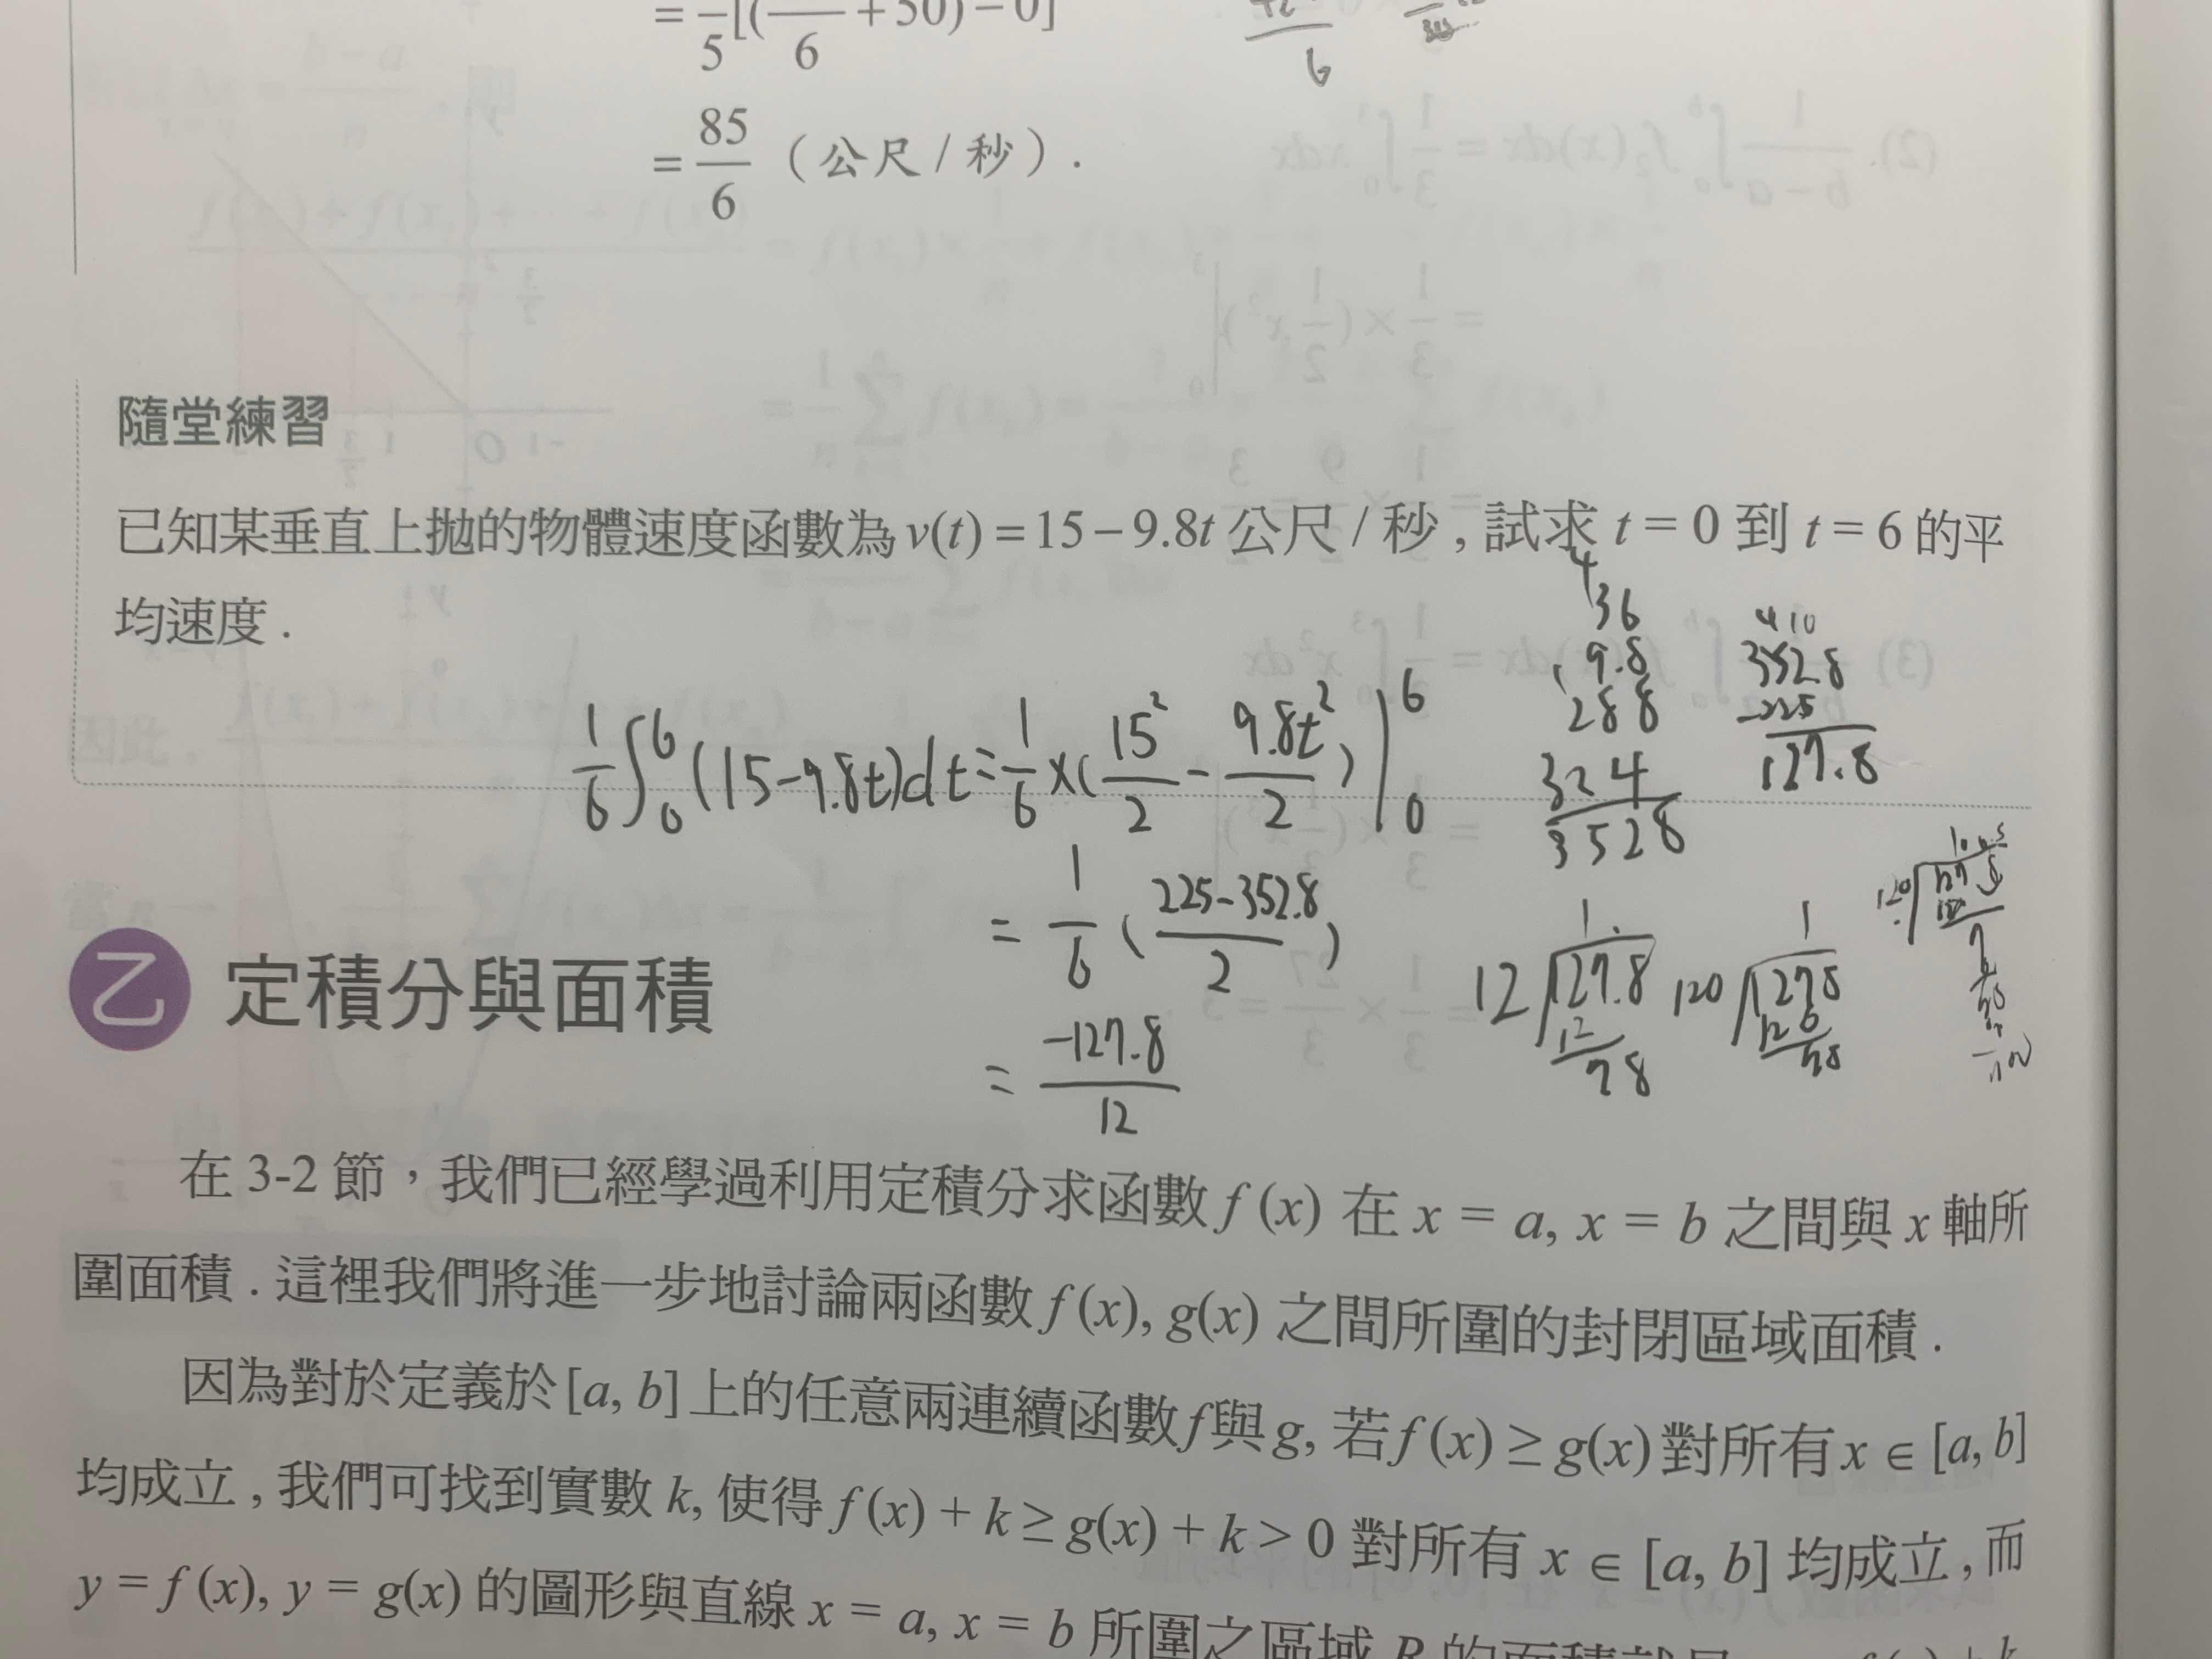 = 1/5[(—/6 + 50) − 0]
= 85/6 (公尺 / 秒).
6
隨堂練習
已知某垂直上拋的物體速度函數為 v(t) = 15 − 9.8t 公尺 / 秒 , 試求 t = 0 到 t = 6 的平
均速度 .
1/6 ∫₀⁶ (15−9.8t)dt = 1/6 ×( 15²/2 − 9.8t²/2 ) |₀⁶
= 1/6 ( 225−352.8 / 2 )
= −127.8/12
4
36
9.8
288
324
3528
4 10
352.8
−225
127.8
1.
12 127.8
12
78
1
120 1278
120
78
乙 定積分與面積
在 3-2 節，我們已經學過利用定積分求函數 f (x) 在 x = a, x = b 之間與 x 軸所
圍面積 . 這裡我們將進一步地討論兩函數 f (x), g(x) 之間所圍的封閉區域面積 .
因為對於定義於 [a, b] 上的任意兩連續函數 f 與 g, 若 f (x) ≥ g(x) 對所有 x ∈ [a, b]
均成立 , 我們可找到實數 k, 使得 f (x) + k ≥ g(x) + k > 0 對所有 x ∈ [a, b] 均成立 , 而
y = f (x), y = g(x) 的圖形與直線 x = a, x = b 所圍之區域 R 的面積就是